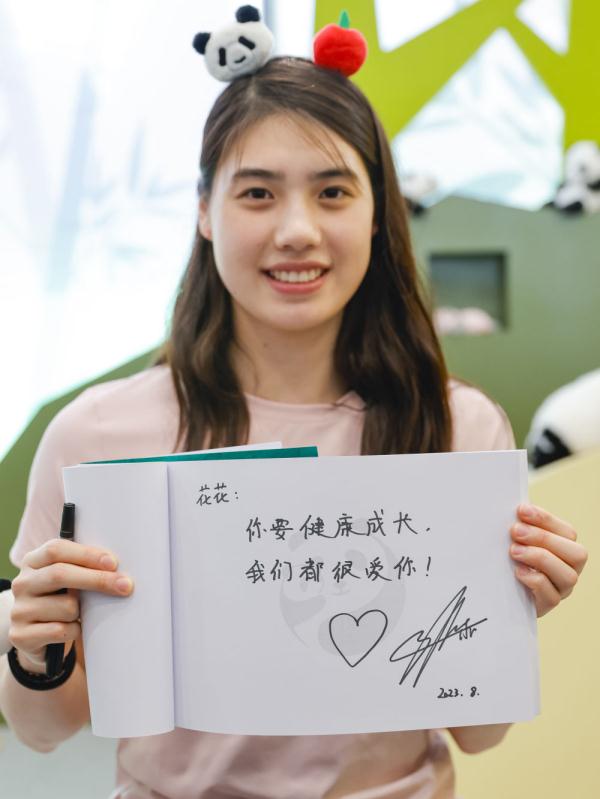 花花：
你要健康成长，
我们都很爱你！
2023.8.